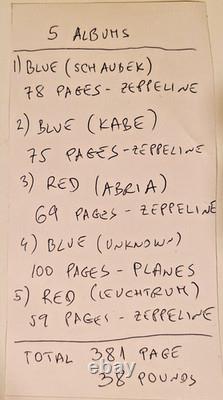 5 ALBUMS
1) BLUE (SCHAUBEK)
78 PAGES - ZEPPELINE
2) BLUE (KABE)
75 PAGES - ZEPPELINE
3) RED (ABRIA)
69 PAGES - ZEPPELINE
4) BLUE (UNKNOWN)
100 PAGES - PLANES
5) RED (LEUCHTRUM)
59 PAGES - ZEPPELINE
TOTAL 381 PAGE
38 POUNDS
ebay